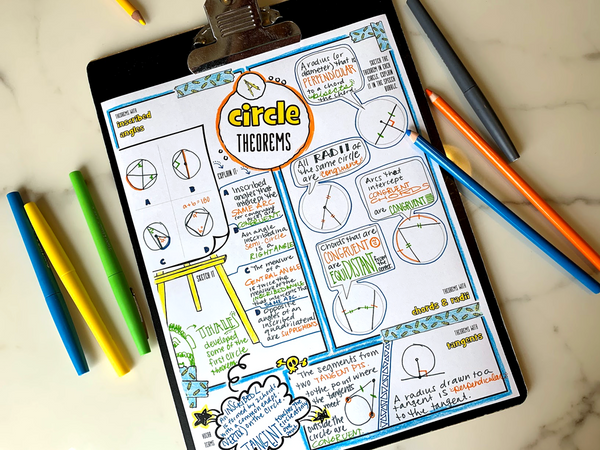 circle
THEOREMS
THEOREMS WITH
inscribed
angles
A
B
a+b=180
C
D
EXPLAIN IT:
SKETCH IT
A Inscribed
angles that
SAME ARC
CONGRUENT
An angle
inscribed in a
semi-circle
is a
RIGHT ANGLE
C The measure
of a
CENTRAL ANGLE
is twice the
measure of the
INSCRIBED ANGLE
that intercepts the
SAME ARC
D Opposite
angles of an
inscribed
quadrilateral
are SUPPLEMENTARY
THALES
developed
some of the
first circle
theorems
A radius (or
diameter) that is
PERPENDICULAR
to a chord
BISECTS
the chord
SKETCH THE
THEOREM IN EACH
CIRCLE. EXPLAIN
IT IN THE SPEECH
BUBBLE.
All RADII of
the same circle
are congruent
Arcs that
intercept
CONGRUENT
CHORDS
are CONGRUENT
Chords that are
CONGRUENT
are
EQUIDISTANT
from the
center
THEOREMS WITH
chords & radii
THEOREMS WITH
tangents
The segments from
two TANGENT PTS
to the point where
the tangents
meet
outside the
circle are
CONGRUENT
A radius drawn to a
tangent is perpendicular
to the tangent.
An INSCRIBED
is formed by 2 chords
with a common endpt
(VERTEX) on the circle.
TANGENT